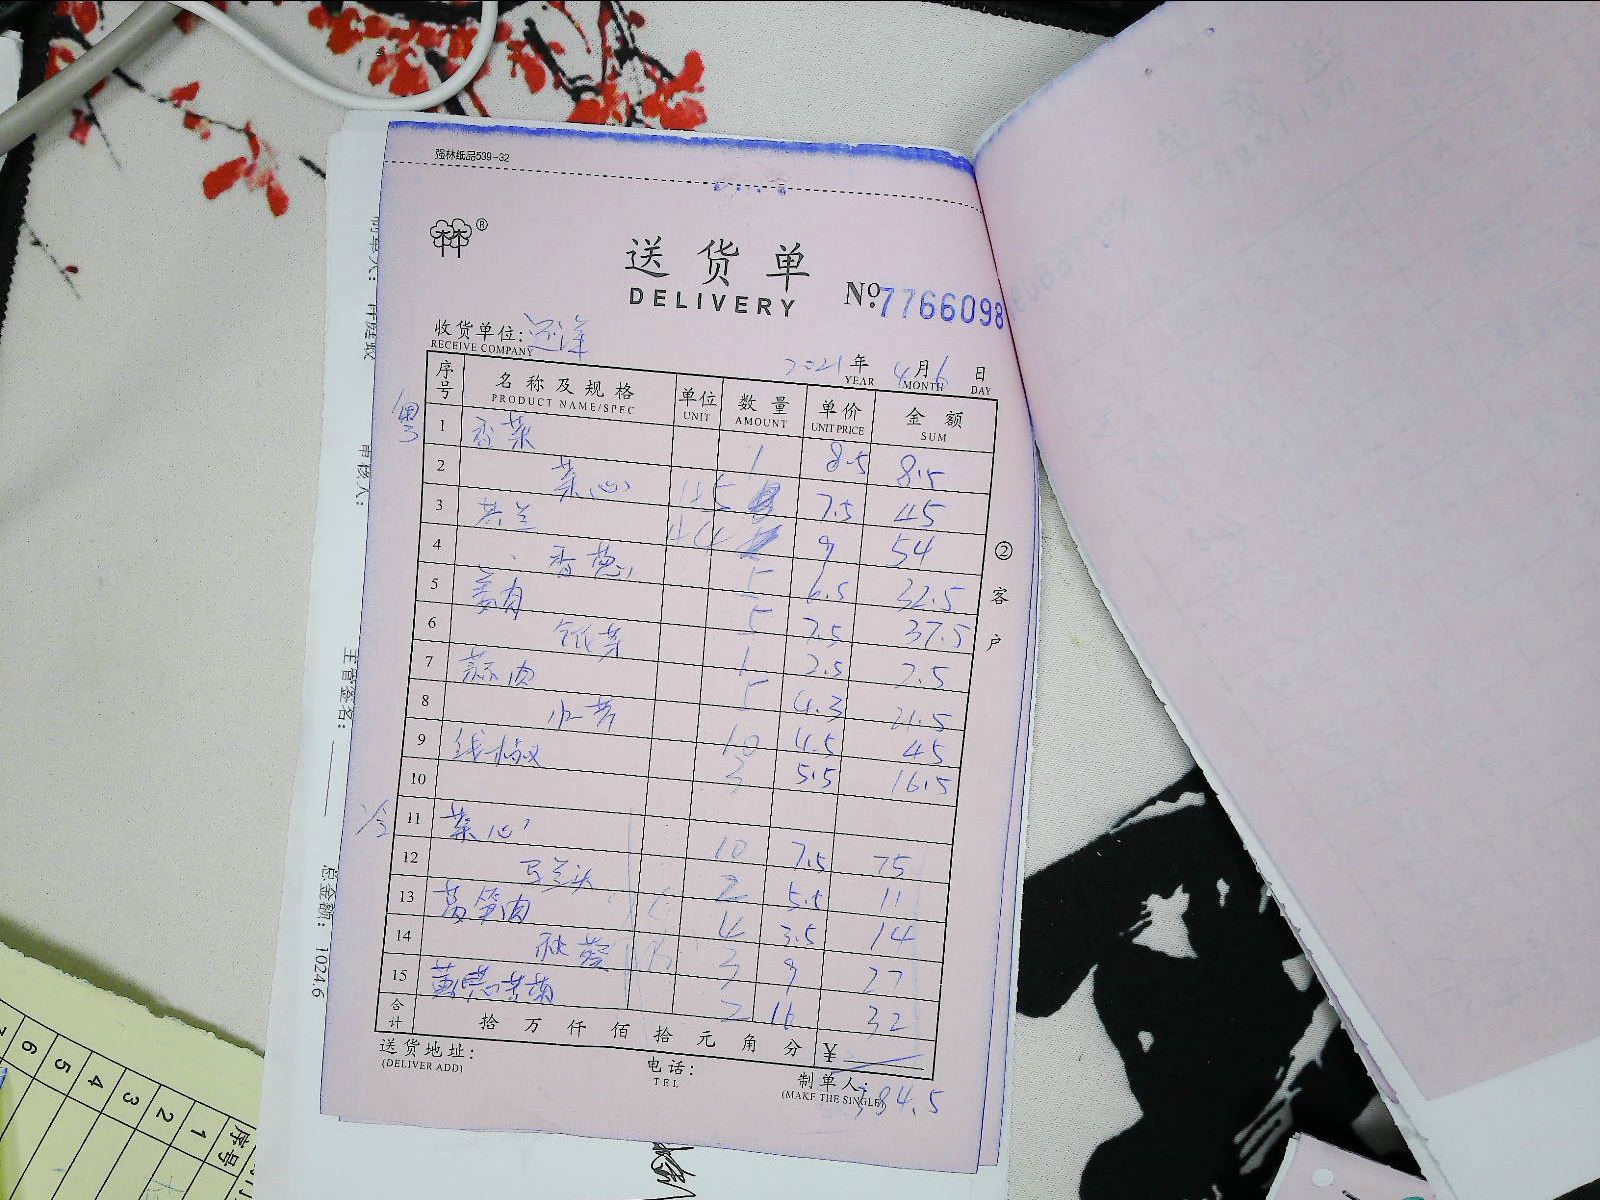 强林纸品539-32
林林®
送货单
DELIVERY
No:7766098
收货单位:远洋
RECEIVE COMPANY
2021年4月6日
YEAR MONTH DAY
序号 名称及规格 单位 数量 单价 金额
PRODUCT NAME/SPEC UNIT AMOUNT UNIT PRICE SUM
粤
1 香菜 1 8.5 8.5
2 菜心 7.5 45
3 芥兰 9 54
4 香葱 5 6.5 32.5
5 姜肉 5 7.5 37.5
6 1 2.5 2.5
7 蒜肉 5 4.3 21.5
8 水芹 10 4.5 45
9 线椒 3 5.5 16.5
10
冷
11 菜心 10 7.5 75
12 马兰头 2 5.5 11
13 莴笋肉 4 3.5 14
14 秋葵 3 9 27
15 2 16 32
合计 拾万仟佰拾元角分 ¥
送货地址:
(DELIVER ADD)
电话:
TEL
制单人:
(MAKE THE SINGLE)
384.5
②客户
审核人:
主管签名:
总金额: 1024.6
序号
1
2
3
4
5
6
7